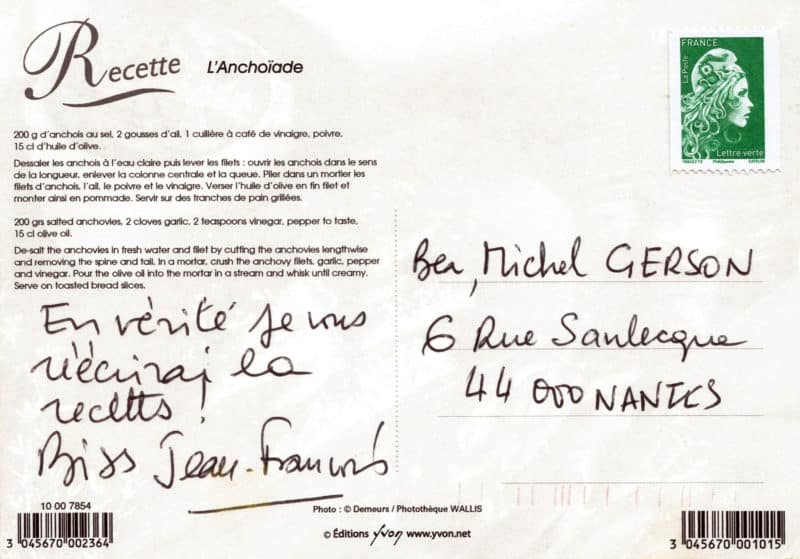 Recette L'Anchoïade
FRANCE
La Poste
Lettre verte
200 g d'anchois au sel, 2 gousses d'ail, 1 cuillère à café de vinaigre, poivre,
15 cl d'huile d'olive.
Dessaler les anchois à l'eau claire puis lever les filets : ouvrir les anchois dans le sens
de la longueur, enlever la colonne centrale et la queue. Piler dans un mortier les
filets d'anchois, l'ail, le poivre et le vinaigre. Verser l'huile d'olive en fin filet et
monter ainsi en pommade. Servir sur des tranches de pain grillées.
200 grs salted anchovies, 2 cloves garlic, 2 teaspoons vinegar, pepper to taste,
15 cl olive oil.
De-salt the anchovies in fresh water and filet by cutting the anchovies lengthwise
and removing the spine and tail. In a mortar, crush the anchovy filets, garlic, pepper
and vinegar. Pour the olive oil into the mortar in a stream and whisk until creamy.
Serve on toasted bread slices.
En vérité je vous
réécrirai la
recette !
Biss Jean-François
Bea, Michel GERSON
6 Rue Saulecque
44 000 NANTES
10 00 7854
3 045670 002364
Photo : © Demeurs / Photothèque WALLIS
© Éditions Yvon www.yvon.net
3 045670 001015